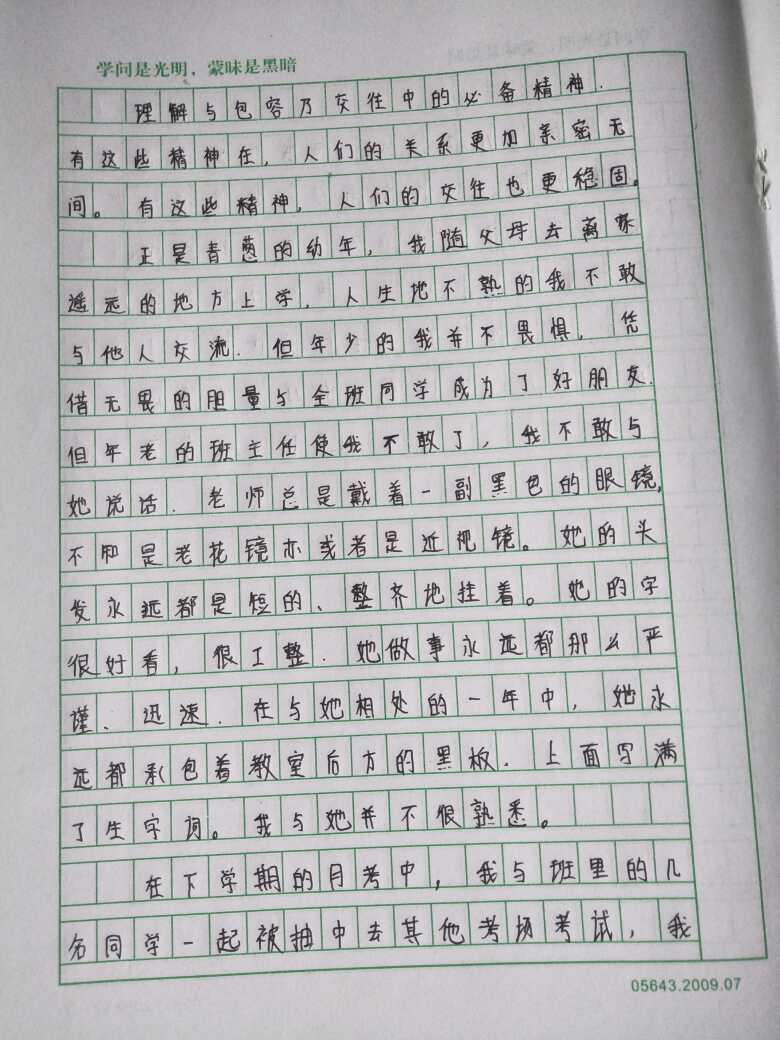 学问是光明，蒙昧是黑暗
理解与包容乃交往中的必备精神.
有这些精神在，人们的关系更加亲密无
间。有这些精神，人们的交往也更稳固。
正是青葱的幼年，我随父母去离家
遥远的地方上学，人生地不熟的我不敢
与他人交流.但年少的我并不畏惧，凭
借无畏的胆量与全班同学成为了好朋友.
但年老的班主任使我不敢了，我不敢与
她说话.老师总是戴着一副黑色的眼镜，
不知是老花镜亦或者是近视镜。她的头
发永远都是短的、整齐地挂着。她的字
很好看，很工整.她做事永远都那么严
谨、迅速.在与她相处的一年中，她永
远都承包着教室后方的黑板.上面写满
了生字词。我与她并不很熟悉。
在下学期的月考中，我与班里的几
名同学一起被抽中去其他考场考试，我
05643.2009.07